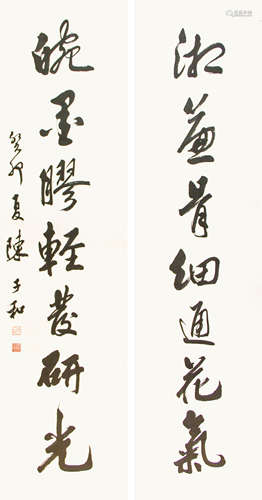 湘簾骨細通花氣
皖墨膠輕發研光
癸卯夏陳子和